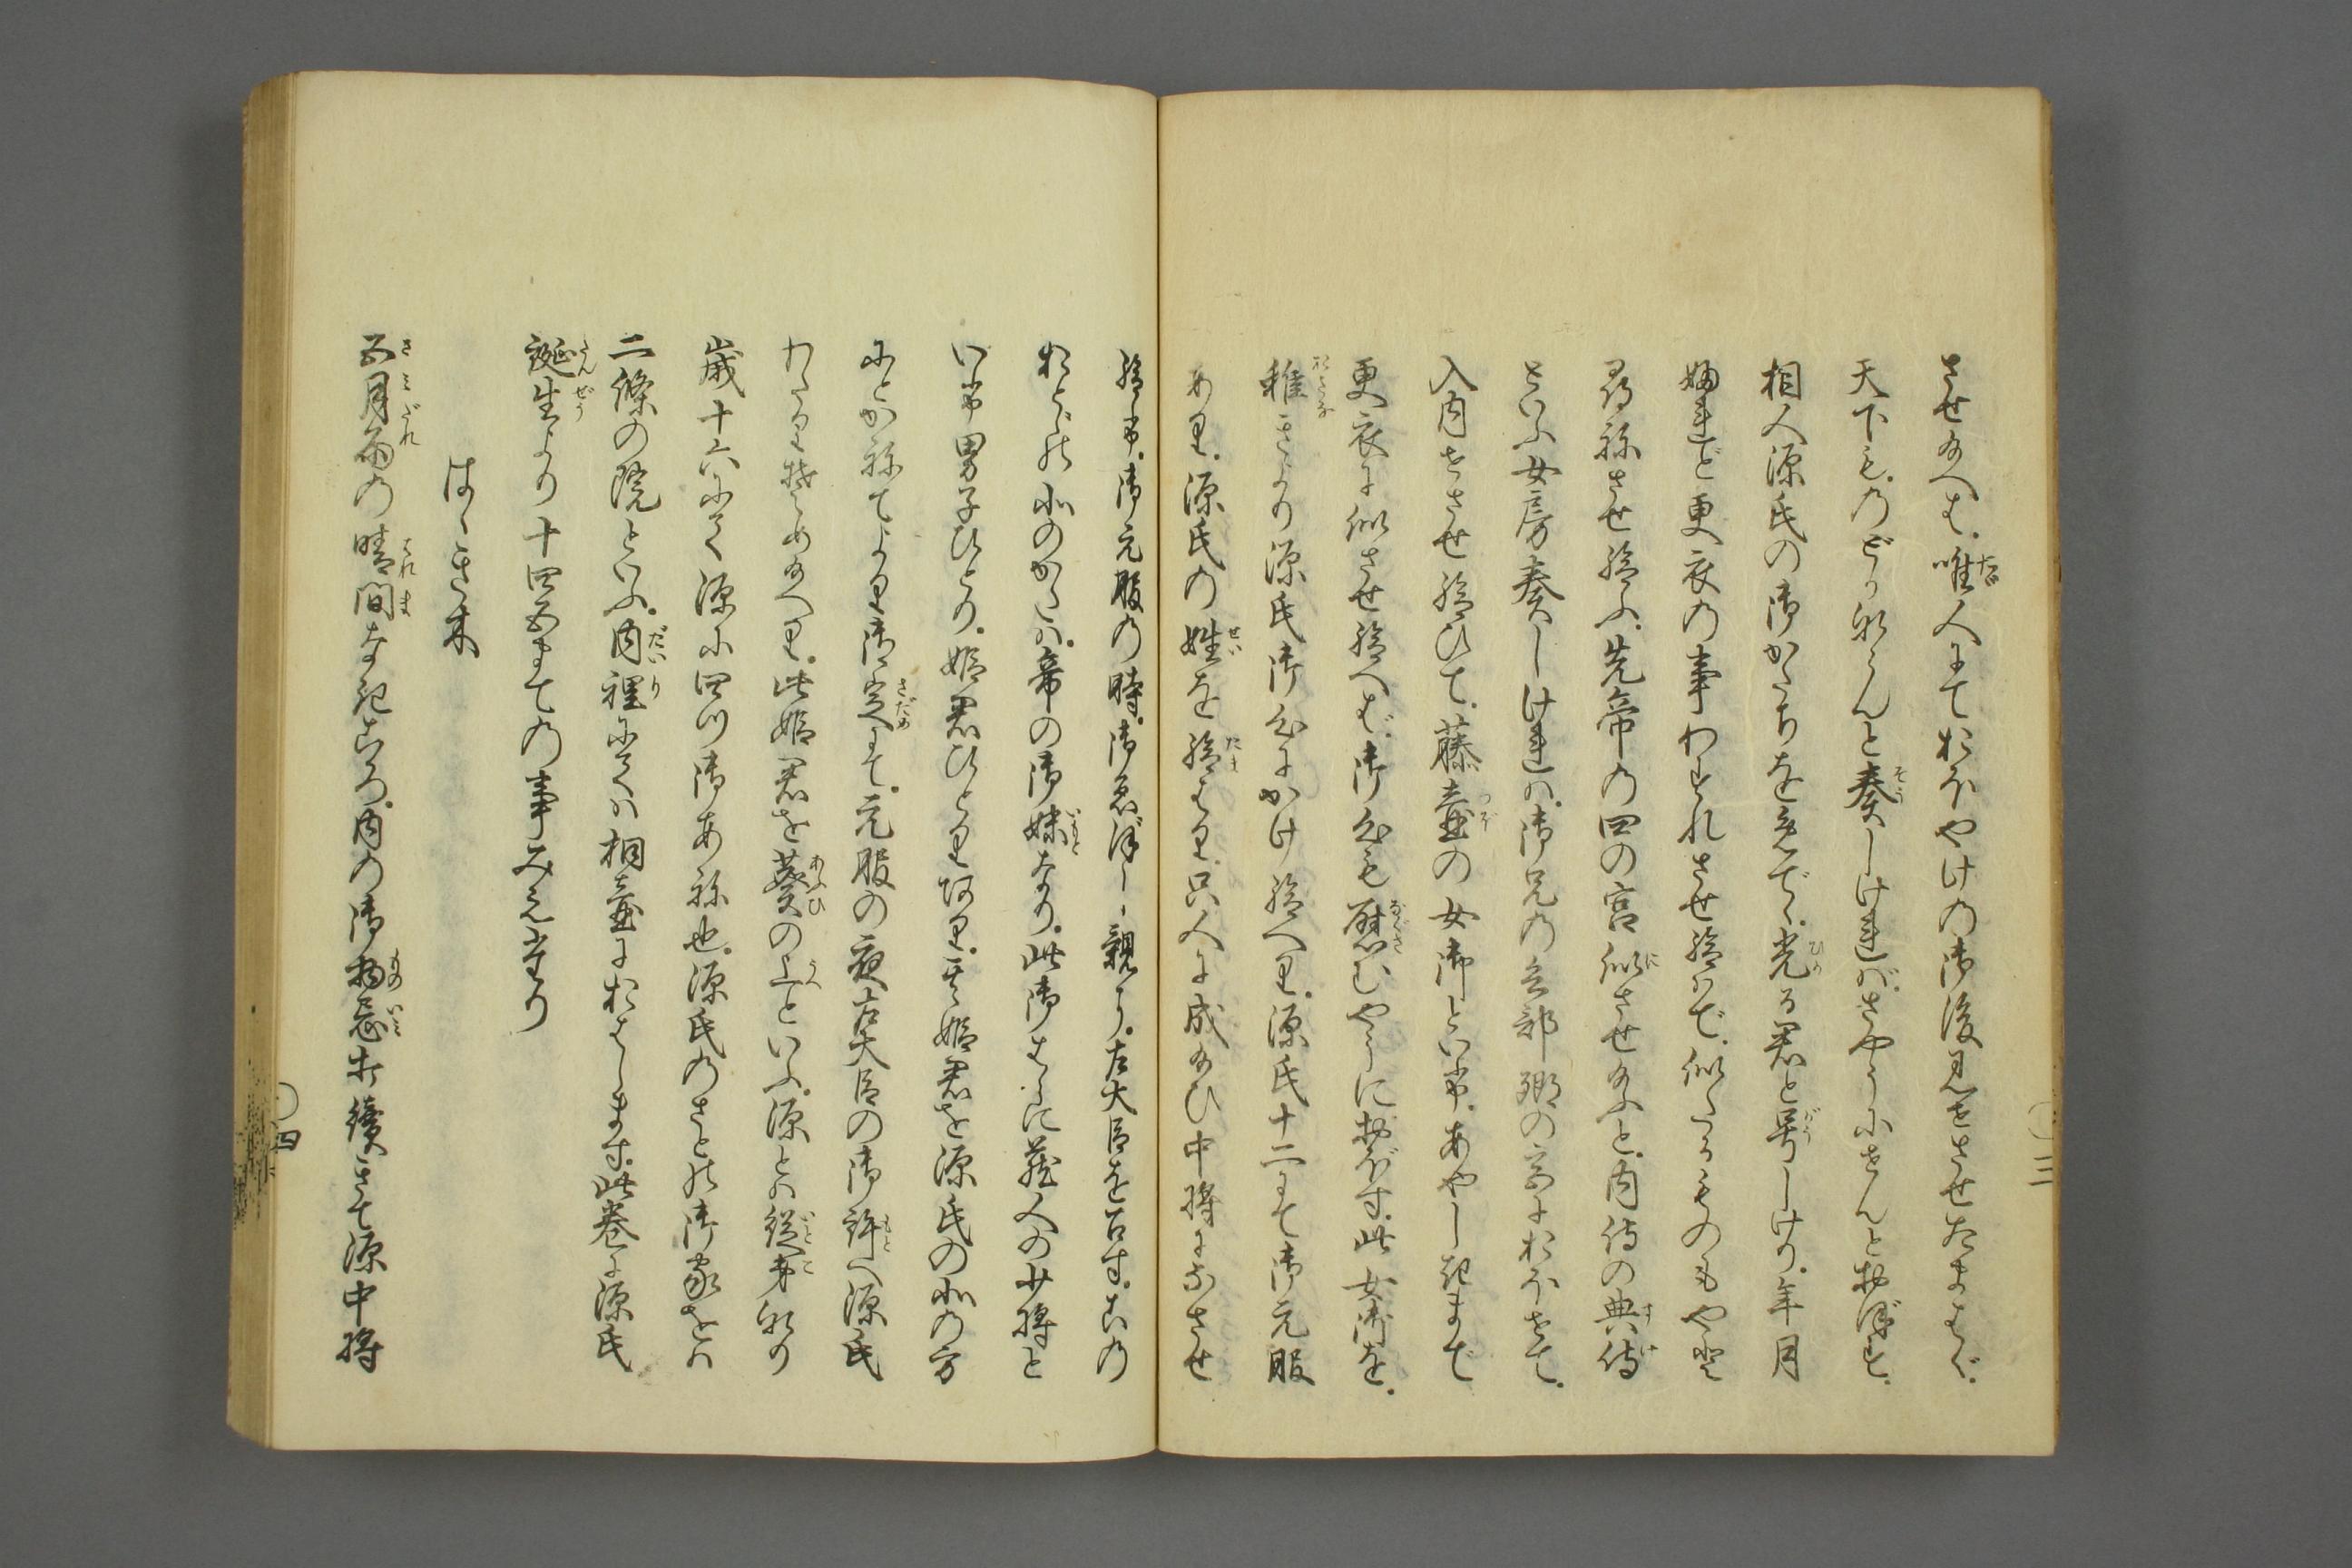 させ給へは。唯人にておほやけの御後見をさせたまはゞ。
天下も。のどかならんと奏しければ。さやうにせんとおぼしき。
相人源氏の御かたちをめでゝ。光る君と号しけり。年月
ふれど更衣の事わすれさせ給はで。似たるものもやと
尋ねさせ給ふ。先帝の四の宮似させ給ふと。内侍の典侍
といふ女房奏しければ。御兄の兵部卿の宮におほせて。
入内せさせ給ひて。藤壺の女御といふ。あやしきまで
更衣に似させ給へば。御心も慰むやうにおぼす。此女御を。
稚きより源氏御心にかけ給へり。源氏十二にて御元服
あり。源氏の姓を給はり。只人に成給ひ中将になさせ
給ふ。御元服の時。御ゑぼし親に。左大臣を召す。この
おとゞの北のかたは。帝の御妹なり。此御はらに蔵人の少将と
いふ男子ひとり。姫君ひとりおはす。其姫君を源氏の北の方
にとかねてより御定にて。元服の夜左大臣の御許へ源氏
わたりそめ給へり。此姫君を葵の上といふ。源とは従弟なり
歳十六にて源に四つ御あね也。源氏のさとの御家をは
二條の院といふ。内裡にては桐壺におはします。此巻に源氏
誕生より十四五まての事みえたり
はゝき木
五月雨の晴間なきころ。内の御物忌打續きて源中将
三
四